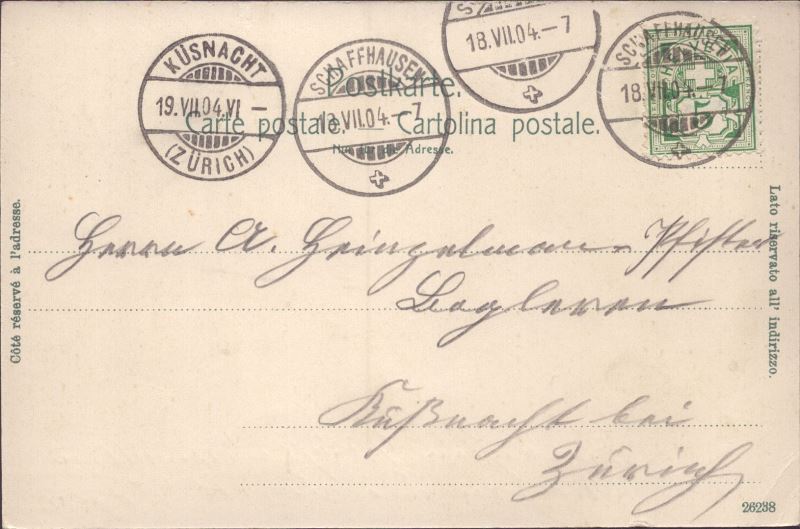 KÜSNACHT
19.VII.04.VI –
(ZÜRICH)
SCHAFFHAUSEN
18.VII.04.–7
18.VII.04.–7
SCHAFFHAUSEN
18.VII.04.–7
HELVETIA
5
Postkarte.
Carte postale. — Cartolina postale.
Nur für die Adresse.
Côté réservé à l'adresse.
Lato riservato all' indirizzo.
Herrn A. Heingelman-Pfister
Bogleren
Küßnacht bei
Zürich
26238